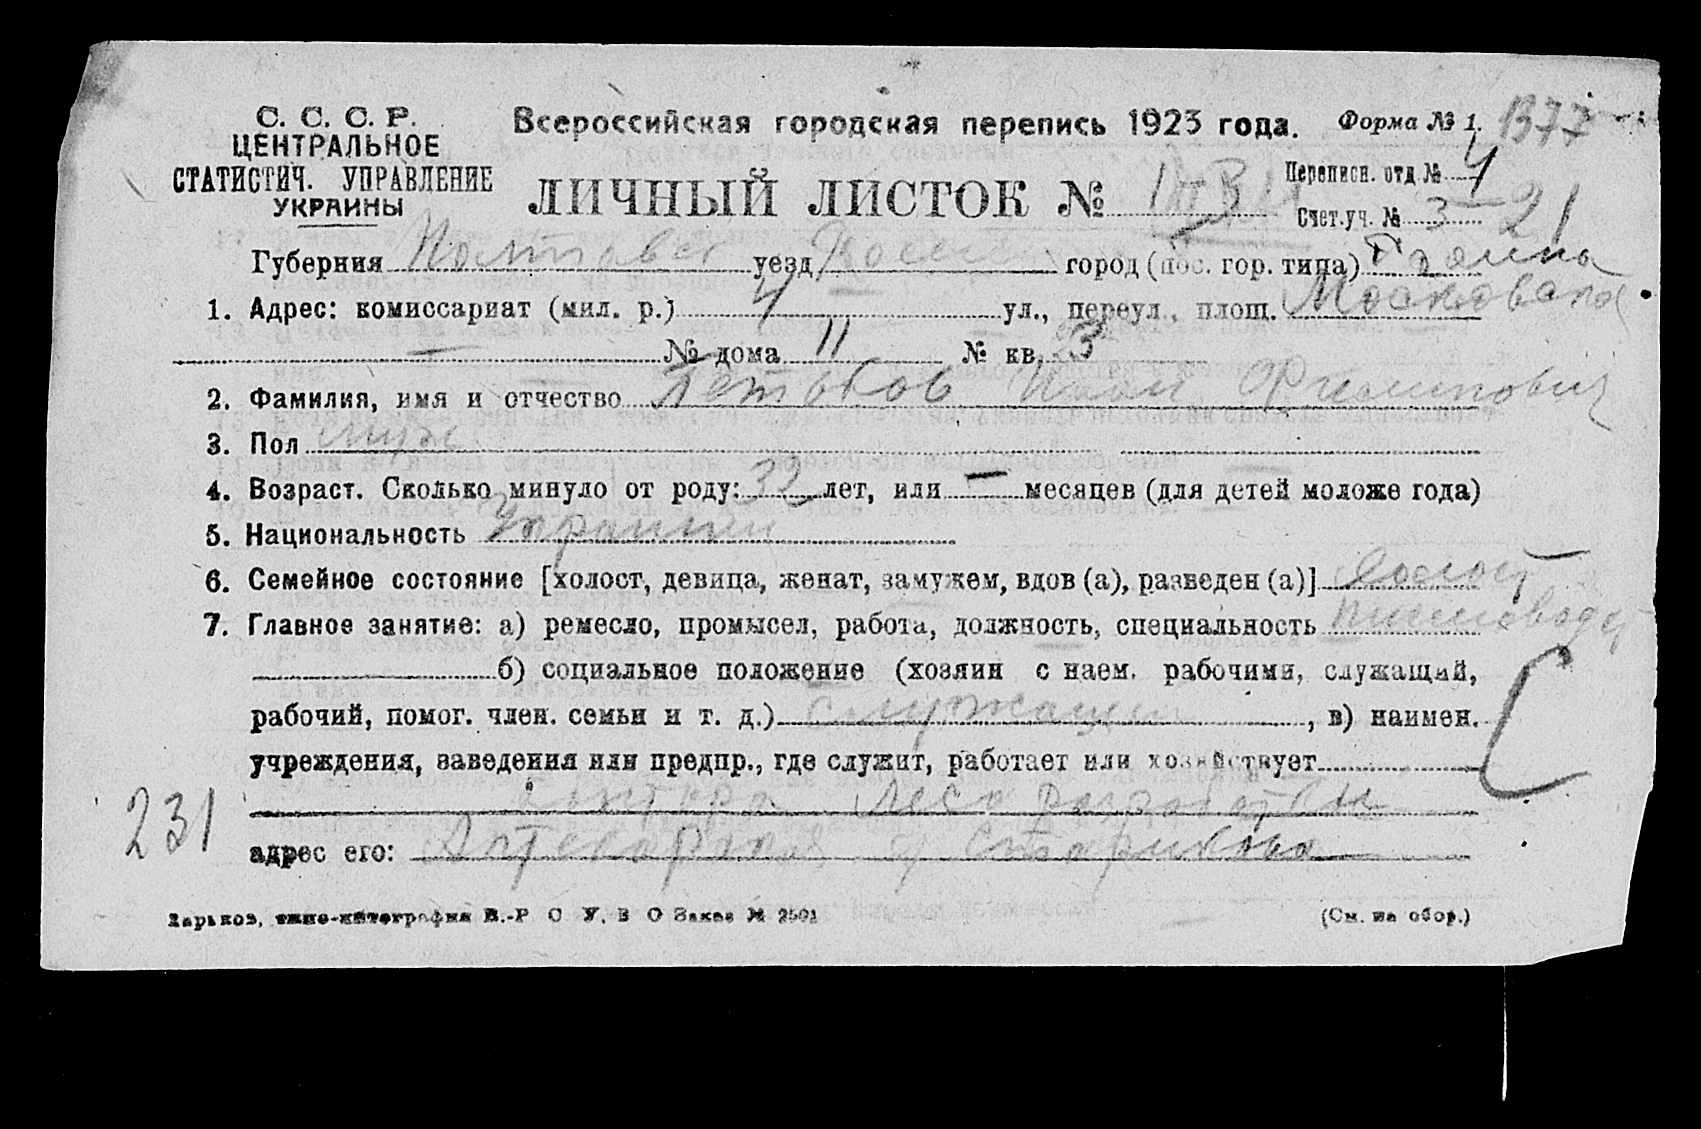 С. С. С. Р.
ЦЕНТРАЛЬНОЕ
СТАТИСТИЧ. УПРАВЛЕНИЕ
УКРАИНЫ
Всероссийская городская перепись 1923 года.
Форма № 1.
1377
ЛИЧНЫЙ ЛИСТОК №
Переписн. отд. № 4
Счет.уч. № 3
21
Губерния Полтавс уезд город (пос. гор. типа)
1. Адрес: комиссариат (мил. р.) 4 ул., переул., площ. Московская
№ дома 11 № кв. 3
2. Фамилия, имя и отчество Иван Филиппович
3. Пол муж
4. Возраст. Сколько минуло от роду: 32 лет, или — месяцев (для детей моложе года)
5. Национальность Украинец
6. Семейное состояние [холост, девица, женат, замужем, вдов (а), разведен (а)] Холост
7. Главное занятие: а) ремесло, промысел, работа, должность, специальность
б) социальное положение (хозяин с наем. рабочими, служащий,
рабочий, помог. член. семьи и т. д.) служащий, в) наимен.
учреждения, заведения или предпр., где служит, работает или хозяйствует
С
Контора Лесо разработки
231
адрес его: Аптекарская
Харьков, типо-литография В.-Р С У. В О Заказ № 2501
(См. на обор.)